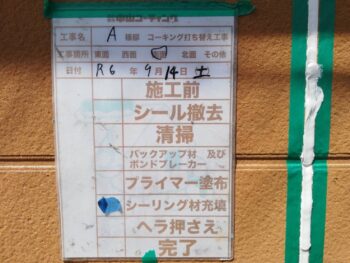 工事名 A 様邸 コーキング打ち替え工事
工事箇所 東面 西面 北面 その他
日付 R6年 9月 14日 土
施工前
シール撤去
清掃
バックアップ材、及び
ボンドブレーカー
プライマー塗布
シーリング材充填
ヘラ押さえ
完了